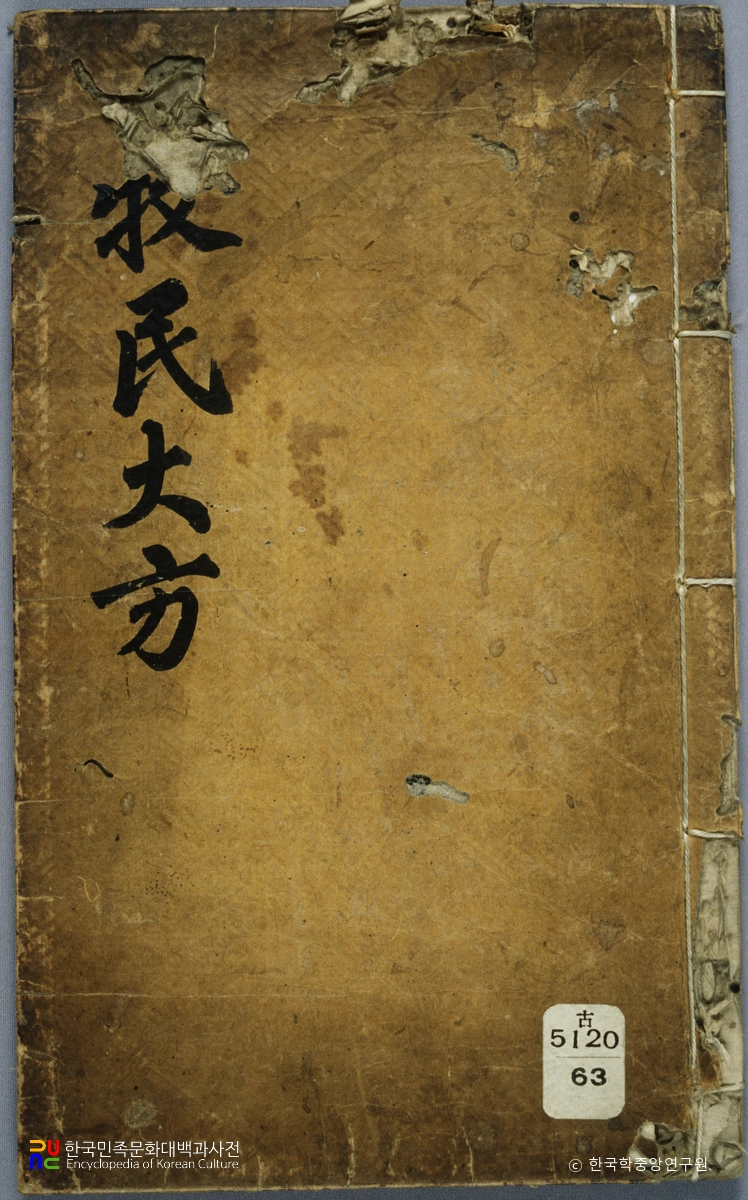 牧民大方
古
5120
63
한국민족문화대백과사전
Encyclopedia of Korean Culture
© 한국학중앙연구원